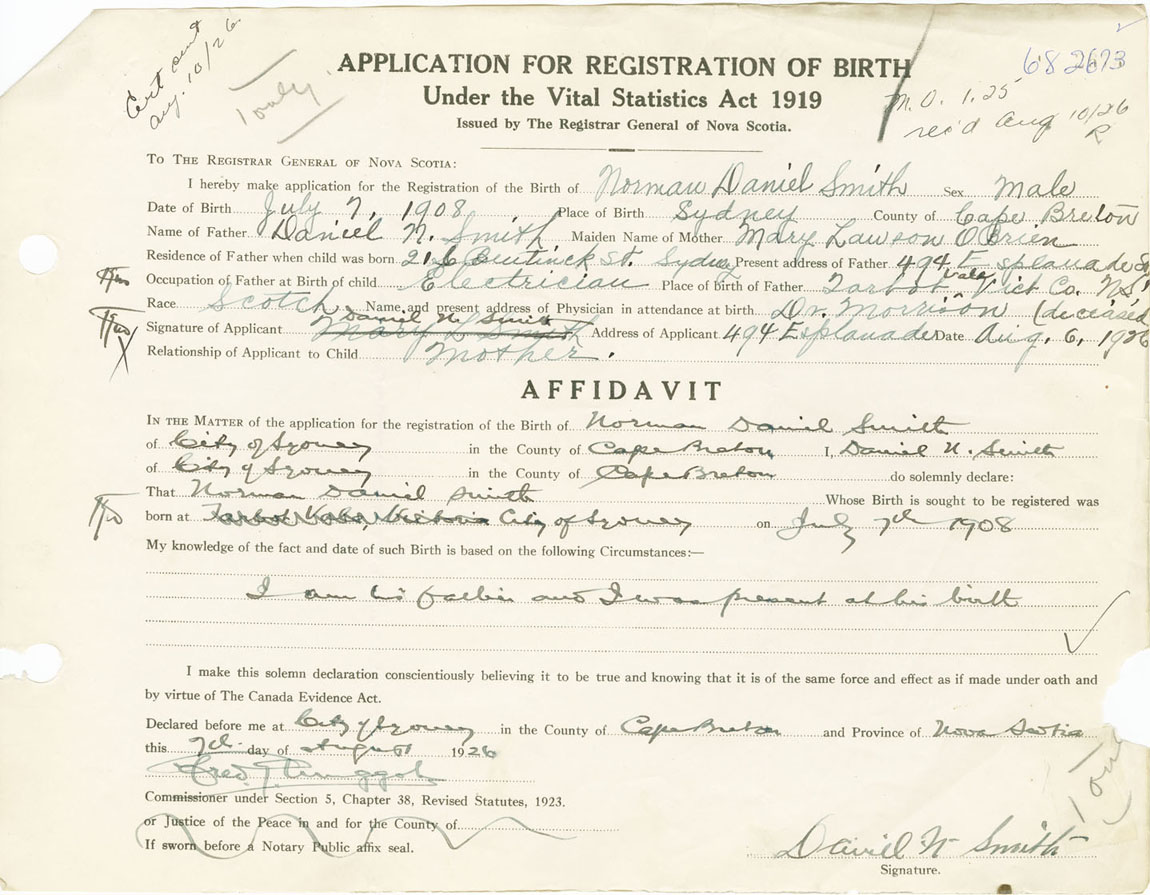 Cert sent
Aug. 10/26.
1 only
682673
M.O. 1.25
rec'd Aug 10/26
R
APPLICATION FOR REGISTRATION OF BIRTH
Under the Vital Statistics Act 1919
Issued by The Registrar General of Nova Scotia.
TO THE REGISTRAR GENERAL OF NOVA SCOTIA:
I hereby make application for the Registration of the Birth of Norman Daniel Smith Sex Male
Date of Birth July 7, 1908, Place of Birth Sydney County of Cape Breton
Name of Father Daniel N. Smith Maiden Name of Mother Mary Lawson O'Brien
Residence of Father when child was born 216 Bentinck St. Sydney Present address of Father 494 Esplanade St
Occupation of Father at Birth of child Electrician Place of birth of Father Tarbot Vale Vict Co. N.S.
Race Scotch Name and present address of Physician in attendance at birth Dr. Morrison (deceased
Daniel N. Smith
Signature of Applicant Mary L Smith Address of Applicant 494 Esplanade Date Aug. 6, 1926
Relationship of Applicant to Child Mother.
AFFIDAVIT
IN THE MATTER of the application for the registration of the Birth of Norman Daniel Smith
of City of Sydney in the County of Cape Breton I, Daniel N. Smith
of City of Sydney in the County of Cape Breton do solemnly declare:
That Norman Daniel Smith Whose Birth is sought to be registered was
born at Tarbot Vale, Victoria City of Sydney on July 7th 1908
My knowledge of the fact and date of such Birth is based on the following Circumstances:—
I am his father and I was present at his birth
I make this solemn declaration conscientiously believing it to be true and knowing that it is of the same force and effect as if made under oath and
by virtue of The Canada Evidence Act.
Declared before me at City of Sydney in the County of Cape Breton and Province of Nova Scotia
this 7th day of August 1926
Commissioner under Section 5, Chapter 38, Revised Statutes, 1923.
or Justice of the Peace in and for the County of
If sworn before a Notary Public affix seal.
Daniel N Smith
Signature.